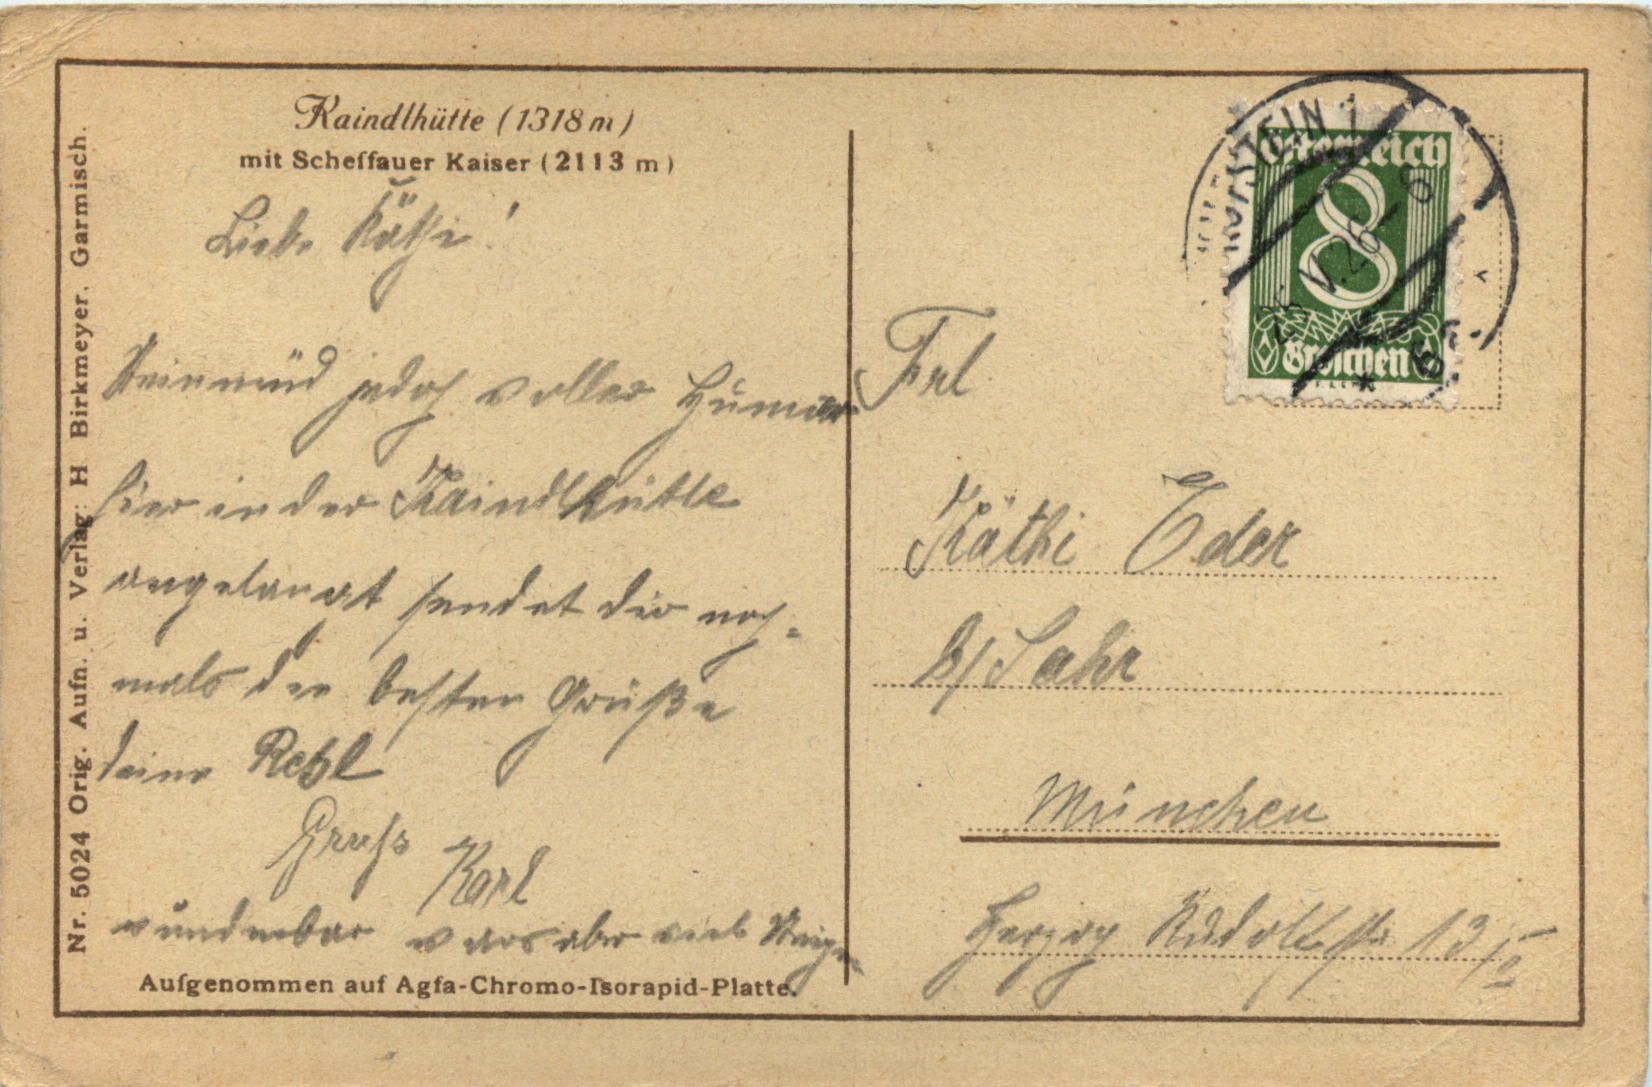 Kaindlhütte (1318 m)
mit Scheffauer Kaiser (2113 m)
Liebe Käthi!
jedoch voller Humor
hier in der Kaindlhütte
angelangt sendet dir noch-
mals die besten Grüße
deine Resl
Gruss
Karl
wunderbar wars aber viel
Aufgenommen auf Agfa-Chromo-Isorapid-Platte.
Nr. 5024 Orig. Aufn. u. Verlag: H Birkmeyer, Garmisch.
KUFSTEIN 1
V.26
Österreich
8
Groschen
Frl
Käthi Eder
b/Sahr
München
Herzog Rudolfstr 13/0